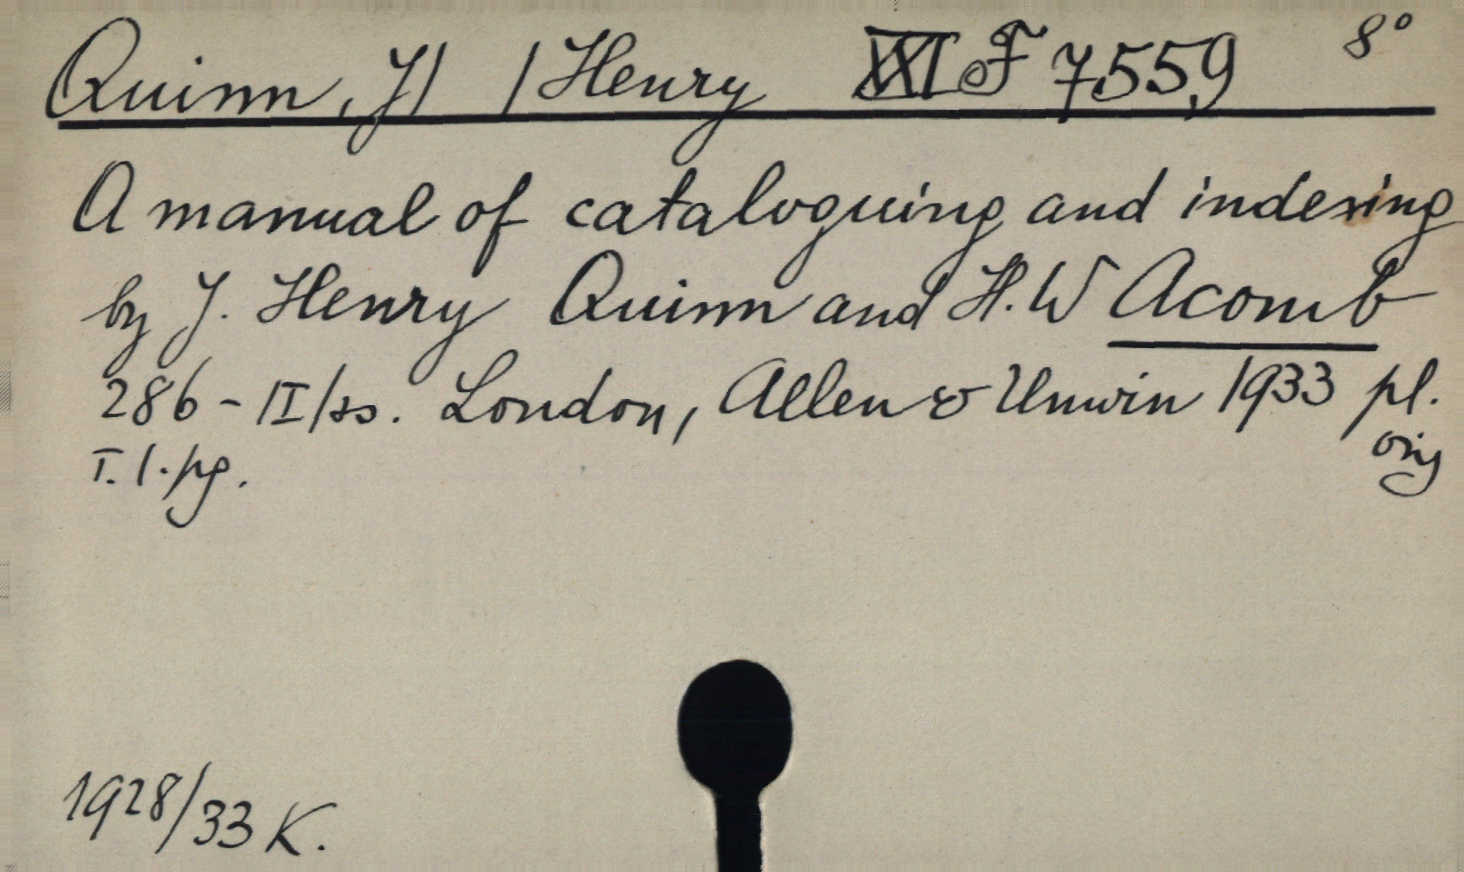 Quinn, J/ /Henry XXI F 7559 8°
A manual of cataloguing and indexing
by J. Henry Quinn and H. W Acomb
286-/II/ss. London, Allen & Unwin 1933 pl.
T. l. pg. orig
1928/33 K.